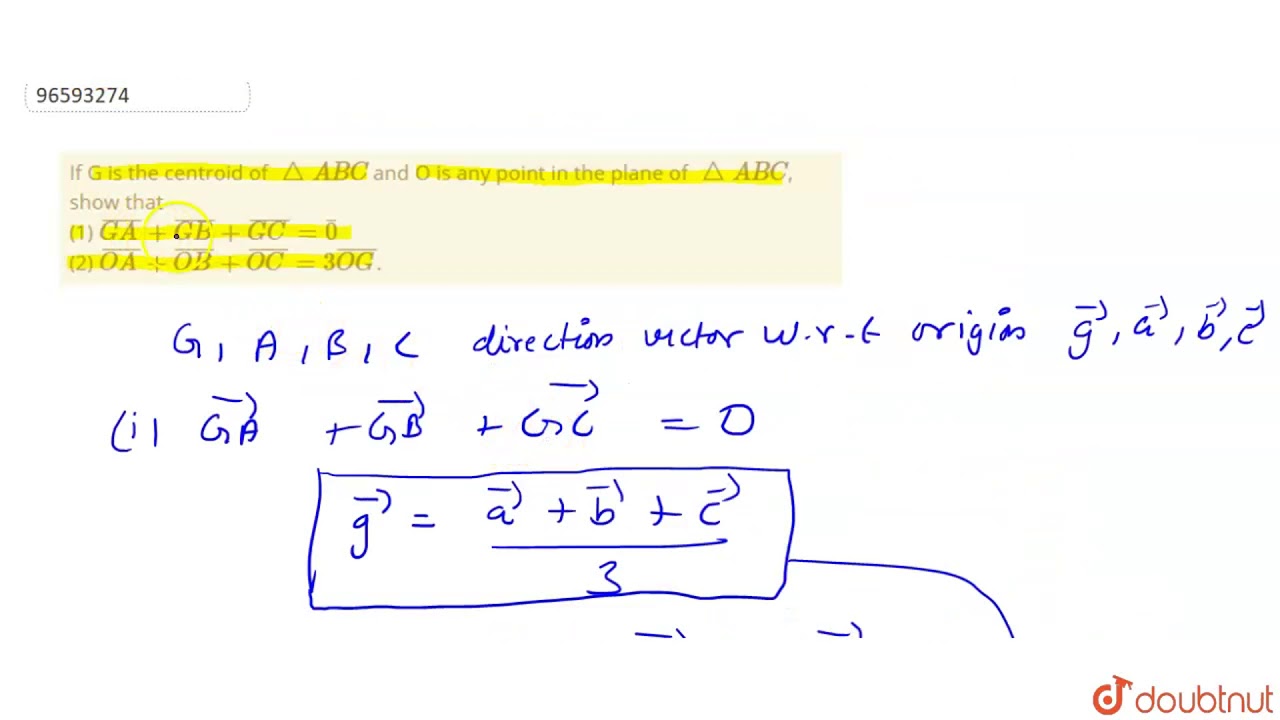 96593274
If G is the centroid of △ ABC and O is any point in the plane of △ ABC,
show that
(1) \overline{GA} + \overline{GB} + \overline{GC} = \bar{0}
(2) \overline{OA} + \overline{OB} + \overline{OC} = 3\overline{OG}.
G, A, B, C direction vector w.r.t origin \vec{g}, \vec{a}, \vec{b}, \vec{c}
(i) \vec{GA} + \vec{GB} + \vec{GC} = 0
\vec{g} = \frac{\vec{a} + \vec{b} + \vec{c}}{3}
doubtnut